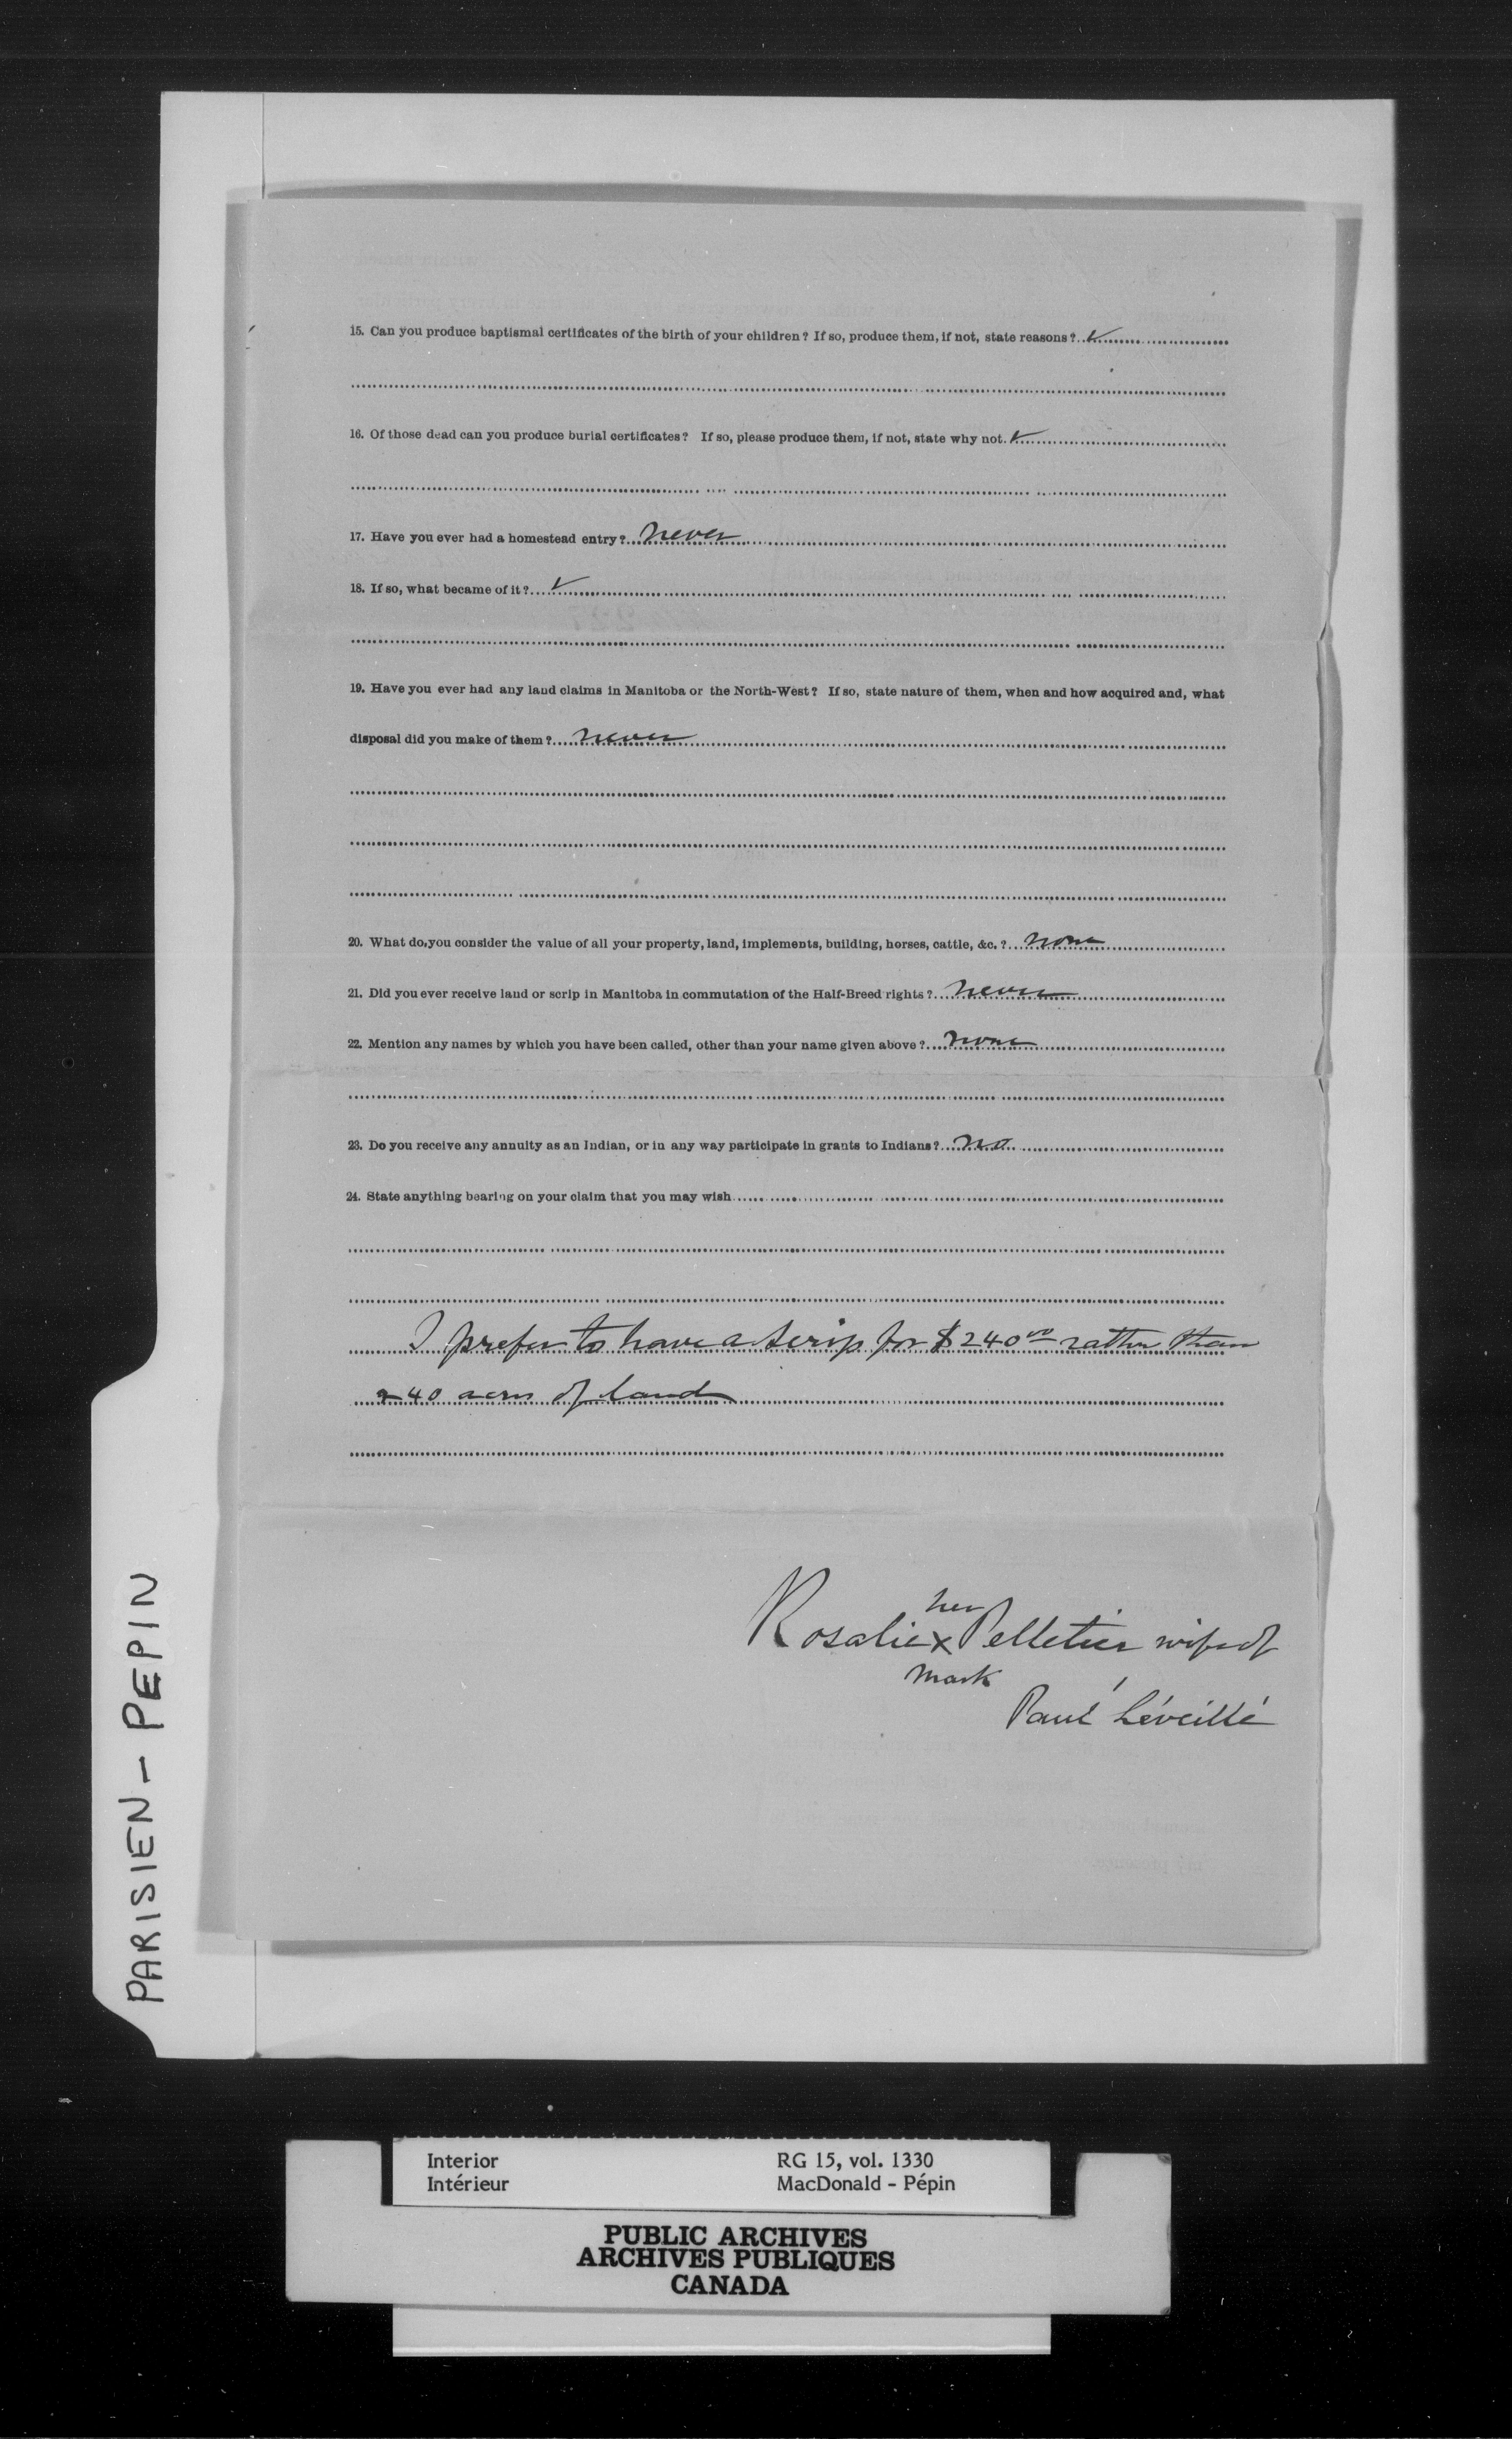 15. Can you produce baptismal certificates of the birth of your children? If so, produce them, if not, state reasons? ✓
16. Of those dead can you produce burial certificates? If so, please produce them, if not, state why not. ✓
17. Have you ever had a homestead entry? never
18. If so, what became of it? ✓
19. Have you ever had any land claims in Manitoba or the North-West? If so, state nature of them, when and how acquired and, what
disposal did you make of them? never
20. What do you consider the value of all your property, land, implements, building, horses, cattle, &c.? none
21. Did you ever receive land or scrip in Manitoba in commutation of the Half-Breed rights? never
22. Mention any names by which you have been called, other than your name given above? none
23. Do you receive any annuity as an Indian, or in any way participate in grants to Indians? no
24. State anything bearing on your claim that you may wish
I prefer to have a scrip for $240.00 rather than
240 acres of land
her
Rosalie x Pelletier wife of
mark
Paul Léveillé
PARISIEN - PEPIN
Interior RG 15, vol. 1330
Intérieur MacDonald - Pépin
PUBLIC ARCHIVES
ARCHIVES PUBLIQUES
CANADA